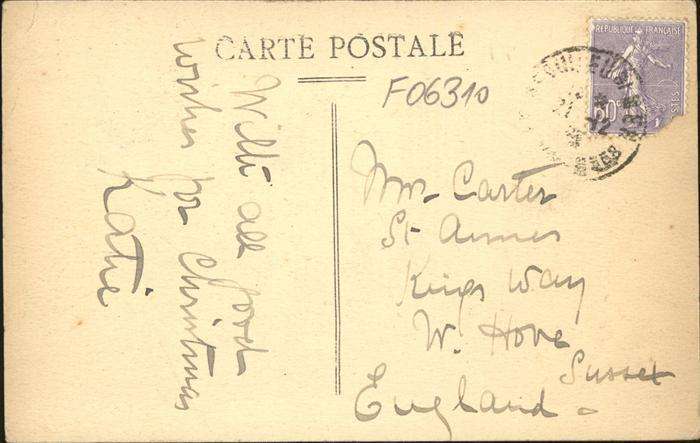 CARTE POSTALE
F06310
REPUBLIQUE FRANÇAISE
60c
POSTES
With all good
wishes for Christmas
Katie
Mrs Carter
St Annes
Kings Way
W. Hove
Sussex
England